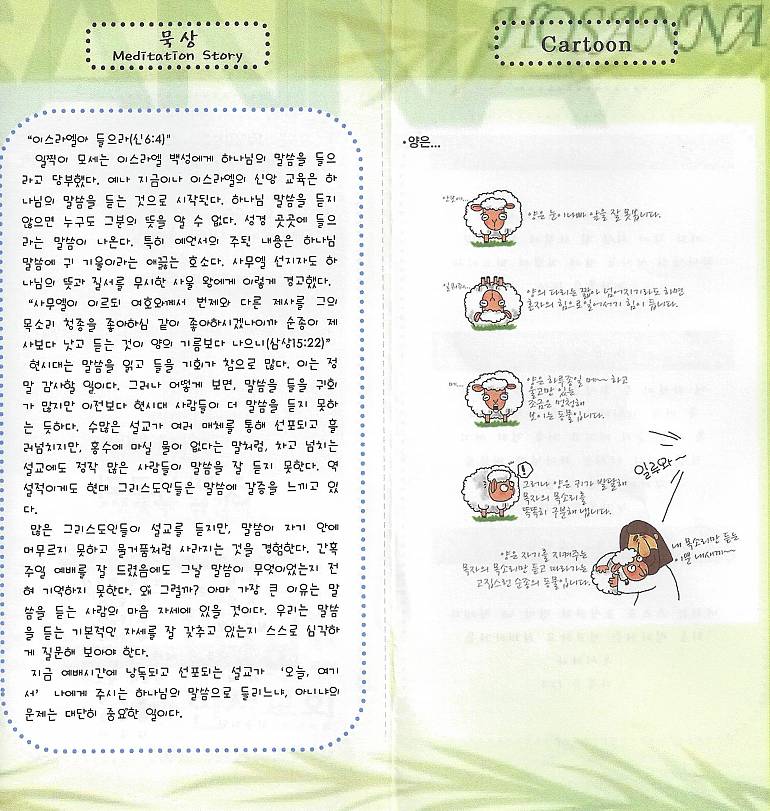 HOSANNA
묵상
Meditation Story
Cartoon
"이스라엘아 들으라(신6:4)"
일찍이 모세는 이스라엘 백성에게 하나님의 말씀을 들으
라고 당부했다. 예나 지금이나 이스라엘의 신앙 교육은 하
나님의 말씀을 듣는 것으로 시작된다. 하나님 말씀을 듣지
않으면 누구도 그분의 뜻을 알 수 없다. 성경 곳곳에 들으
라는 말씀이 나온다. 특히 예언서의 주된 내용은 하나님
말씀에 귀 기울이라는 애끓는 호소다. 사무엘 선지자도 하
나님의 뜻과 질서를 무시한 사울 왕에게 이렇게 경고했다.
"사무엘이 이르되 여호와께서 번제와 다른 제사를 그의
목소리 청종을 좋아하심 같이 좋아하시겠나이까 순종이 제
사보다 낫고 듣는 것이 양의 기름보다 나으니(삼상15:22)"
현시대는 말씀을 읽고 들을 기회가 참으로 많다. 이는 정
말 감사할 일이다. 그러나 어떻게 보면, 말씀을 들을 귀회
가 많지만 이전보다 현시대 사람들이 더 말씀을 듣지 못하
는 듯하다. 수많은 설교가 여러 매체를 통해 선포되고 흘
러넘치지만, 홍수에 마실 물이 없다는 말처럼, 차고 넘치는
설교에도 정작 많은 사람들이 말씀을 잘 듣지 못한다. 역
설적이게도 현대 그리스도인들은 말씀에 갈증을 느끼고 있
다.
많은 그리스도인들이 설교를 듣지만, 말씀이 자기 안에
머무르지 못하고 물거품처럼 사라지는 것을 경험한다. 간혹
주일 예배를 잘 드렸음에도 그날 말씀이 무엇이었는지 전
혀 기억하지 못한다. 왜 그럴까? 아마 가장 큰 이유는 말
씀을 듣는 사람의 마음 자세에 있을 것이다. 우리는 말씀
을 듣는 기본적인 자세를 잘 갖추고 있는지 스스로 심각하
게 질문해 보아야 한다.
지금 예배시간에 낭독되고 선포되는 설교가 '오늘, 여기
서' 나에게 주시는 하나님의 말씀으로 들리느냐, 아니냐의
문제는 대단히 중요한 일이다.
·양은...
양은 눈이 나빠 앞을 잘 못봅니다.
양의 다리는 짧아 넘어지기라도 하면
혼자의 힘으로 일어서기 힘이 듭니다.
메...
양은 하루종일 메~~ 하고
울고만 있는
조금은 멍청해
보이는 동물입니다.
!
그러나 양은 귀가 발달해
목자의 목소리를
똑똑히 구분해 냅니다.
일루와~
양은 자기를 지켜주는
목자의 목소리만 듣고 따라가는
고집스런 순종의 동물입니다.
내 목소리만 듣는
이쁜 내새끼~~